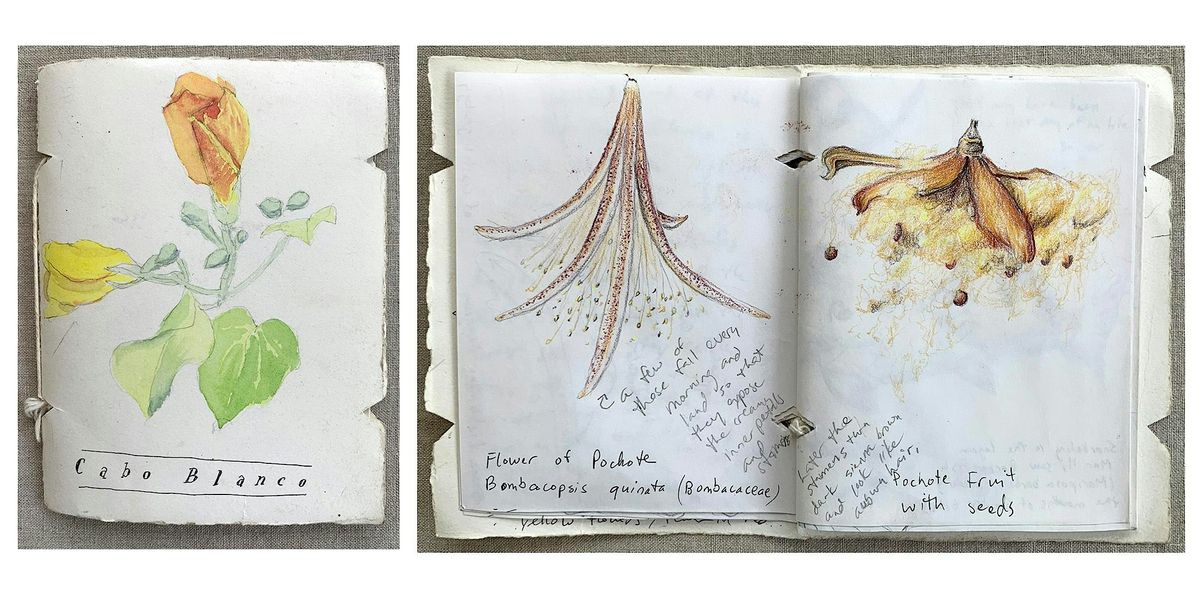 Cabo Blanco
a few of
these fall every
morning and
land so that
they expose
the creamy
inner petals
and stamens
Flower of Pochote
Bombacopsis quinata (Bombacaceae)
Later the
stamens turn
dark sienna brown
and look like
auburn hair.
Pochote Fruit
with seeds
yellow flowers